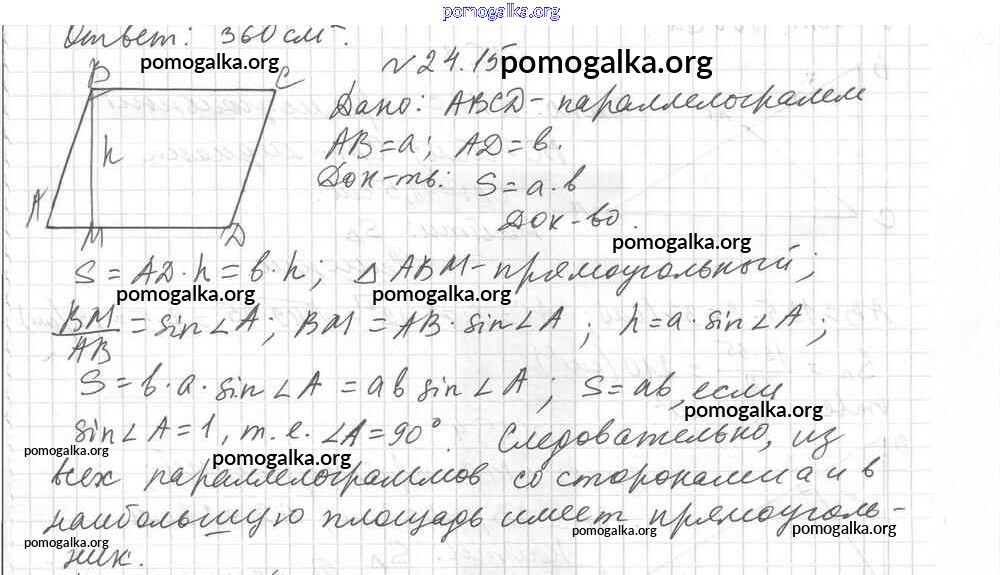 pomogalka.org
Ответ: 360 см².
pomogalka.org
№ 24.15 pomogalka.org
B C
Дано: ABCD - параллелограмм
AB = a; AD = b.
h
Док-ть: S = a · b
A M D
Док-во.
pomogalka.org
S = AD · h = b · h; △ ABM - прямоугольный;
pomogalka.org pomogalka.org
BM/AB = sin∠A; BM = AB · sin∠A; h = a · sin∠A;
S = b · a · sin∠A = ab sin∠A; S = ab, если
pomogalka.org
sin∠A = 1, т. е. ∠A = 90° Следовательно, из
pomogalka.org pomogalka.org pomogalka.org
всех параллелограммов со сторонами a и b
наибольшую площадь имеет прямоуголь-
pomogalka.org pomogalka.org pomogalka.org pomogalka.org
ник.